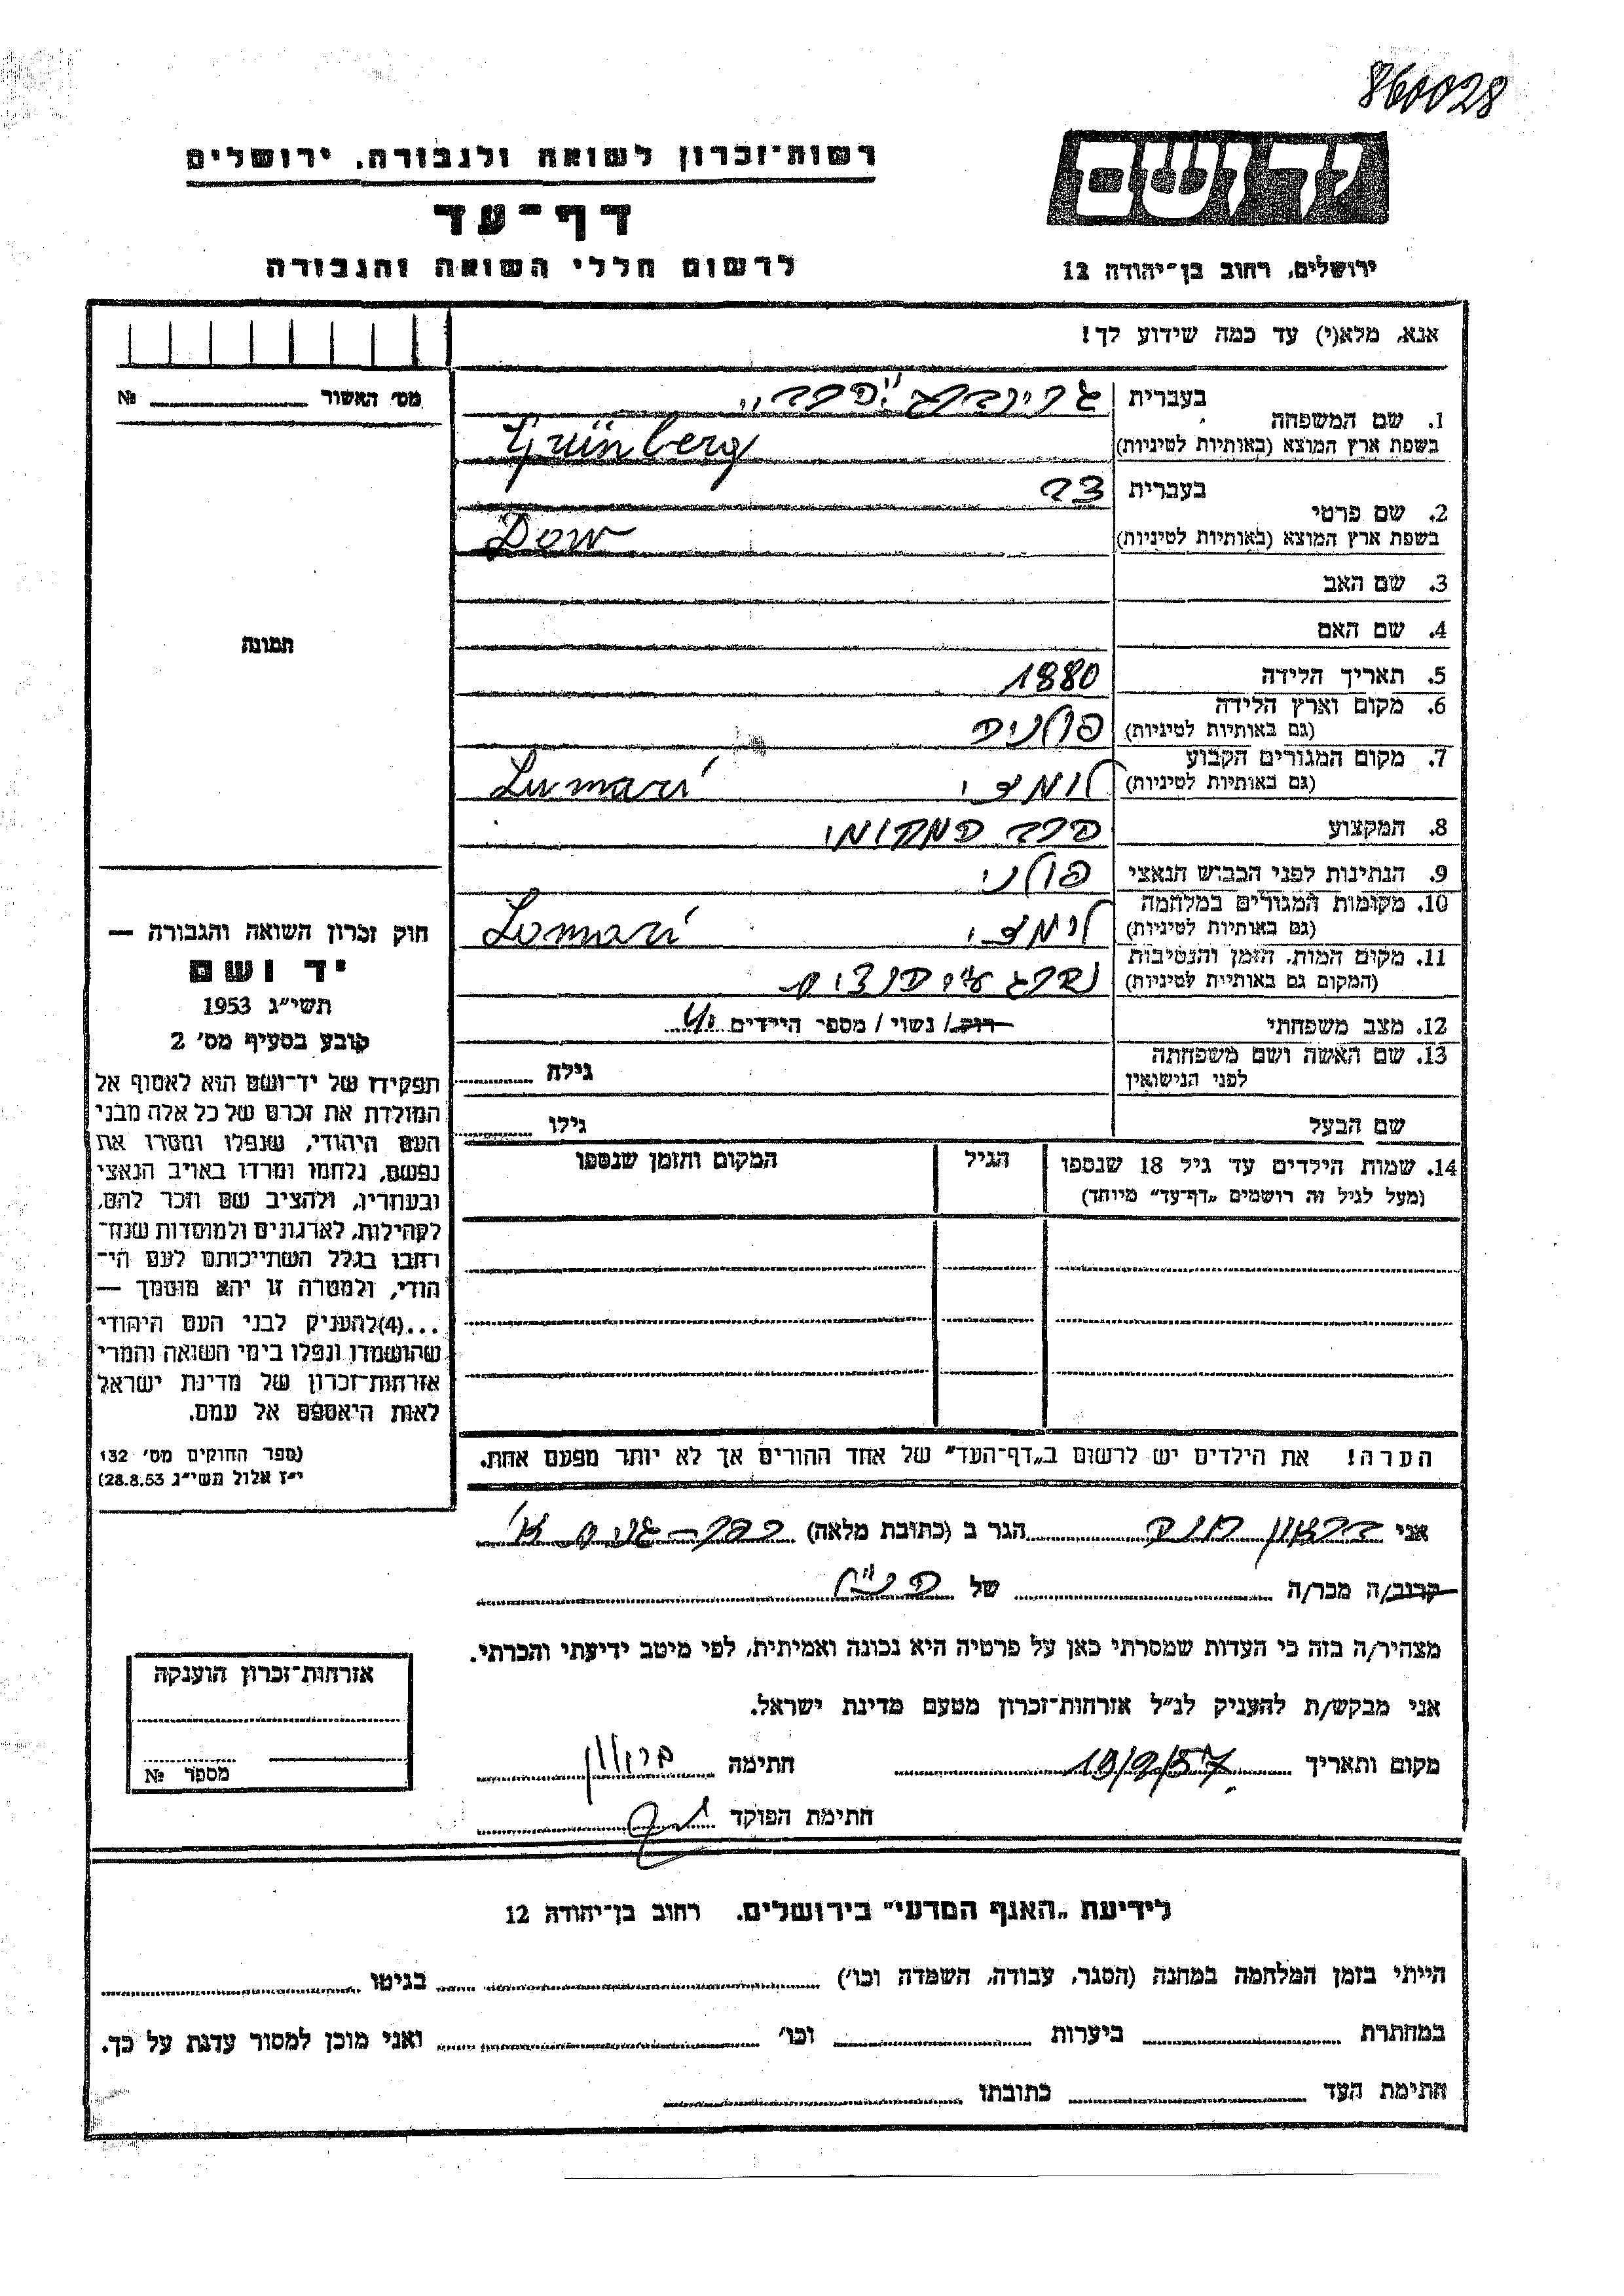 860028
יד ושם
רשות־זכרון לשואה ולגבורה, ירושלים
דף־עד
לרשום חללי השואה והגבורה
ירושלים, רחוב בן־יהודה 12
אנא, מלא(י) עד כמה שידוע לך!
מס׳ האשור № 
תמונה
חוק זכרון השואה והגבורה —
יד ושם
תשי״ג 1953
קובע בסעיף מס׳ 2
תפקידו של יד־ושם הוא לאסוף אל
המולדת את זכרם של כל אלה מבני
העם היהודי, שנפלו ומסרו את
נפשם, נלחמו ומרדו באויב הנאצי
ובעוזריו, ולהציב שם וזכר להם,
לקהילות, לארגונים ולמוסדות שנח־
רחבו בגלל השתייכותם לעם הי־
הודי, ולמטרה זו יהא מוסמך —
...(4)להעניק לבני העם היהודי
שהושמדו ונפלו בימי השואה והמרי
אזרחות־זכרון של מדינת ישראל
לאות היאספם אל עמם.
(ספר החוקים מס׳ 132
י״ז אלול תשי״ג 28.8.53)
1. שם המשפחה בעברית גרינברג
בשפת ארץ המוצא (באותיות לטיניות) Grünberg
2. שם פרטי בעברית דב
בשפת ארץ המוצא (באותיות לטיניות) Dow
3. שם האב
4. שם האם
5. תאריך הלידה 1880
6. מקום וארץ הלידה (גם באותיות לטיניות) פולניה
7. מקום המגורים הקבוע (גם באותיות לטיניות) לומזי Lumazi
8. המקצוע הרב המקומי
9. הנתינות לפני הכבוש הנאצי פולני
10. מקומות המגורים במלחמה (גם באותיות לטיניות) לומזי Lomazi
11. מקום המות, הזמן והנסיבות (המקום גם באותיות לטיניות) נהרג ע״י הנאצים
12. מצב משפחתי רוק/ נשוי/ מספר הילדים
13. שם האשה ושם משפחתה לפני הנישואין גילה
שם הבעל גילו
14. שמות הילדים עד גיל 18 שנספו
(מעל לגיל זה רושמים „דף־עד״ מיוחד)
הגיל
המקום והזמן שנספו
הערה! את הילדים יש לרשום ב„דף־העד״ של אחד ההורים אך לא יותר מפעם אחת.
אני הגר ב (כתובת מלאה)
קרוב/ה מכר/ה של הנ״ל
מצהיר/ה בזה כי העדות שמסרתי כאן על פרטיה היא נכונה ואמיתית, לפי מיטב ידיעתי והכרתי.
אני מבקש/ת להעניק לנ״ל אזרחות־זכרון מטעם מדינת ישראל.
מקום ותאריך 19/9/57 חתימה
חתימת הפוקד
אזרחות־זכרון הוענקה
מספר №
לידיעת „האגף המדעי״ בירושלים, רחוב בן־יהודה 12
הייתי בזמן המלחמה במחנה (הסגר, עבודה, השמדה וכו׳) בגיטו
במחתרת ביערות וכו׳ ואני מוכן למסור עדות על כך.
חתימת העד כתובתו